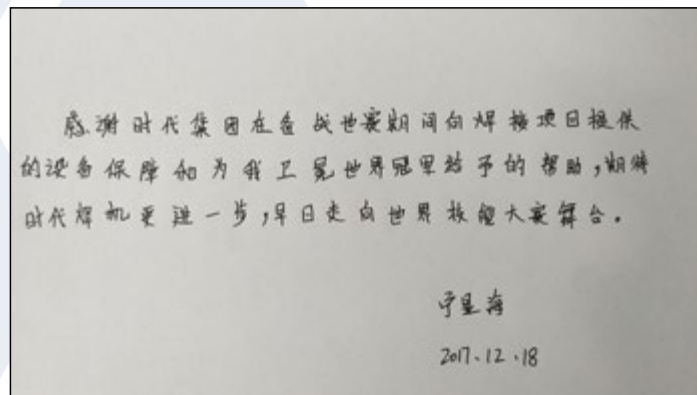 感谢时代集团在备战世赛期间向焊接项目提供
的设备保障和为我卫冕世界冠军给予的帮助,期待
时代焊机更进一步,早日走向世界技能大赛舞台。
宁显海
2017.12.18